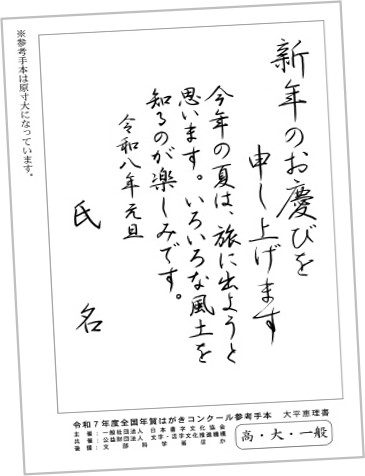 新年のお慶びを
申し上げます
今年の夏は、旅に出ようと
思います。いろいろな風土を
知るのが楽しみです。
令和八年元旦
氏名
※参考手本は原寸大になっています。
令和7年度全国年賀はがきコンクール参考手本 大平恵理書
主催:一般社団法人日本書字文化協会
共催:公益財団法人文字・活字文化推進機構
後援:文部科学省ほか
高・大・一般